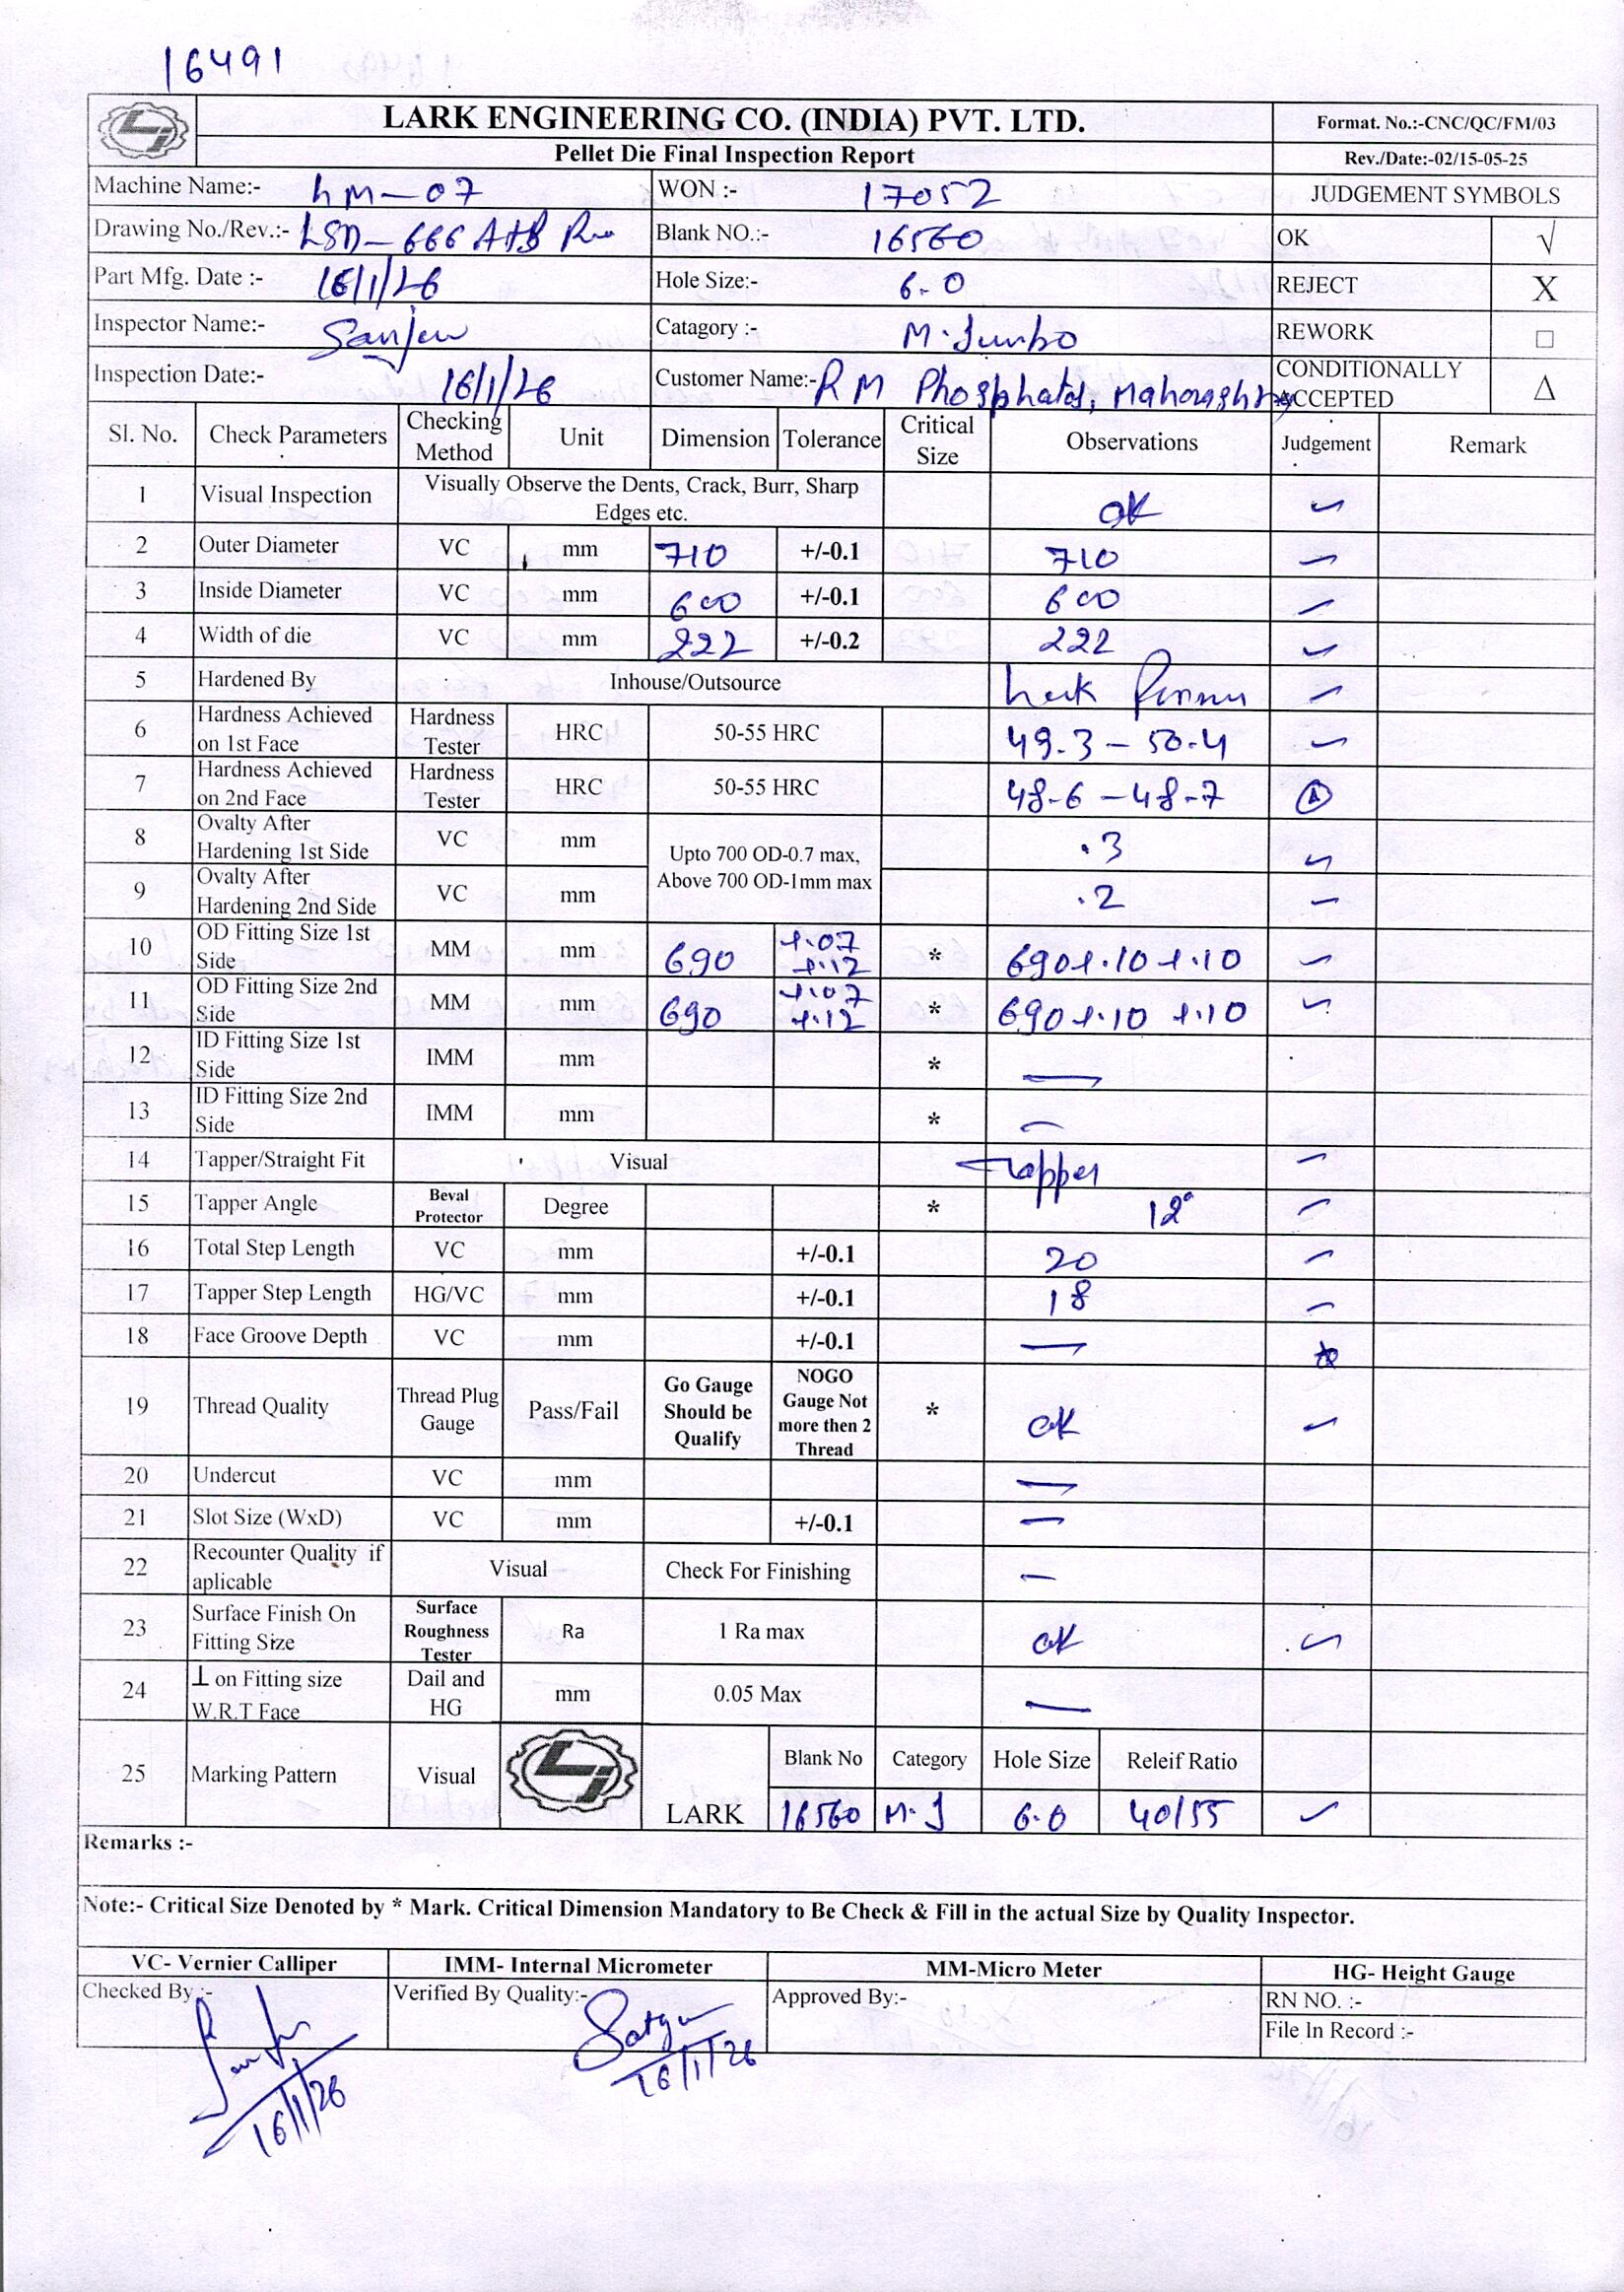 16491
LARK ENGINEERING CO. (INDIA) PVT. LTD.
Format. No.:-CNC/QC/FM/03
Pellet Die Final Inspection Report
Rev./Date:-02/15-05-25
Machine Name:- LM-07 WON :- 17052 JUDGEMENT SYMBOLS
Drawing No./Rev.:- LSD-666 A+B Blank NO.:- 16560 OK √
Part Mfg. Date :- 16/1/26 Hole Size:- 6.0 REJECT X
Inspector Name:- Sanjeev Catagory :- M.Jumbo REWORK □
Inspection Date:- 16/1/26 Customer Name:- RM Phosphates, Maharashtra CONDITIONALLY ACCEPTED Δ
Sl. No. Check Parameters Checking Method Unit Dimension Tolerance Critical Size Observations Judgement Remark
1 Visual Inspection Visually Observe the Dents, Crack, Burr, Sharp Edges etc. OK ✓
2 Outer Diameter VC mm 710 +/-0.1 710 ✓
3 Inside Diameter VC mm 600 +/-0.1 600 ✓
4 Width of die VC mm 222 +/-0.2 222 ✓
5 Hardened By Inhouse/Outsource Lark ✓
6 Hardness Achieved on 1st Face Hardness Tester HRC 50-55 HRC 49.3 - 50.4 ✓
7 Hardness Achieved on 2nd Face Hardness Tester HRC 50-55 HRC 48.6 - 48.7
8 Ovalty After Hardening 1st Side VC mm Upto 700 OD-0.7 max, Above 700 OD-1mm max .3 ✓
9 Ovalty After Hardening 2nd Side VC mm .2 ✓
10 OD Fitting Size 1st Side MM mm 690 +.07 +.12 * 690+.10 +.10 ✓
11 OD Fitting Size 2nd Side MM mm 690 +.07 +.12 * 690+.10 +.10 ✓
12 ID Fitting Size 1st Side IMM mm * —
13 ID Fitting Size 2nd Side IMM mm * —
14 Tapper/Straight Fit Visual Tapper ✓
15 Tapper Angle Beval Protector Degree * 12° ✓
16 Total Step Length VC mm +/-0.1 20 ✓
17 Tapper Step Length HG/VC mm +/-0.1 18 ✓
18 Face Groove Depth VC mm +/-0.1 —
19 Thread Quality Thread Plug Gauge Pass/Fail Go Gauge Should be Qualify NOGO Gauge Not more then 2 Thread * OK ✓
20 Undercut VC mm —
21 Slot Size (WxD) VC mm +/-0.1 —
22 Recounter Quality if aplicable Visual Check For Finishing —
23 Surface Finish On Fitting Size Surface Roughness Tester Ra 1 Ra max OK ✓
24 ⊥ on Fitting size W.R.T Face Dail and HG mm 0.05 Max —
25 Marking Pattern Visual LARK Blank No Category Hole Size Releif Ratio
16560 M.J 6.0 40/55 ✓
Remarks :-
Note:- Critical Size Denoted by * Mark. Critical Dimension Mandatory to Be Check & Fill in the actual Size by Quality Inspector.
VC- Vernier Calliper IMM- Internal Micrometer MM-Micro Meter HG- Height Gauge
Checked By :- Verified By Quality:- Approved By:- RN NO. :-
File In Record :-
16/1/26 16/1/26